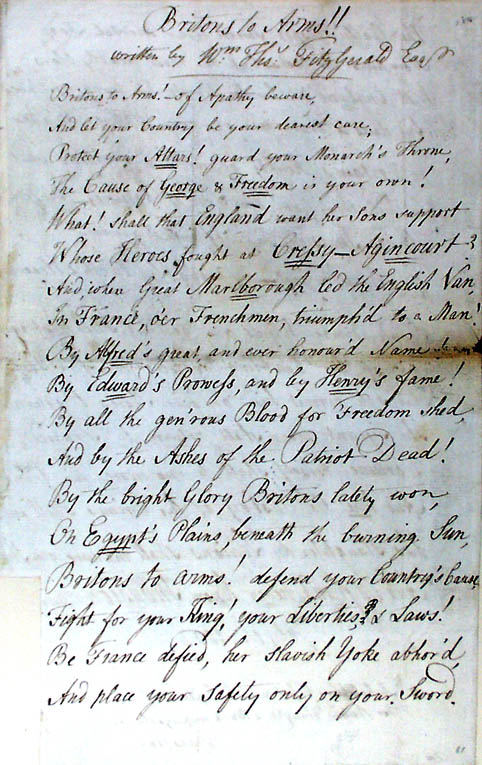 Britons to Arms!!
written by Wm. Thos. FitzGerald Esqr
Britons to Arms! – of Apathy beware,
And let your Country be your dearest care;
Protect your Altars! guard your Monarch's Throne,
The Cause of George & Freedom is your own!
What! shall that England want her Sons support
Whose Heroes fought at Cressy – Agincourt?
And when Great Marlborough led the English Van,
In France, o'er Frenchmen, triumph'd to a Man!
By Alfred's great, and ever honour'd Name
By Edward's Prowess, and by Henry's fame!
By all the gen'rous Blood for Freedom shed,
And by the Ashes of the Patriot Dead!
By the bright Glory Britons lately won,
On Egypt's Plains, beneath the burning Sun,
Britons to Arms! defend your Country's Cause,
Fight for your King! your Liberties, & Laws!
Be France defied, her slavish Yoke abhor'd,
And place your safety only on your Sword.